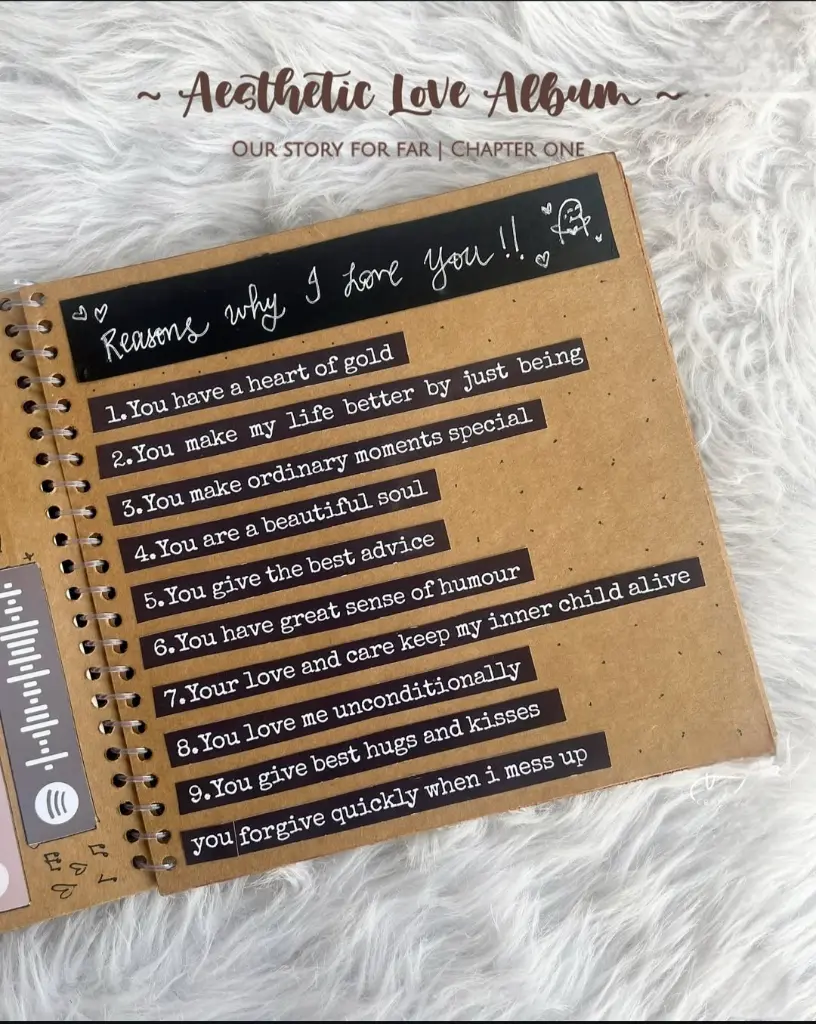 ~ Aesthetic Love Album ~
OUR STORY FOR FAR | CHAPTER ONE
Reasons why I love you!!
1.You have a heart of gold
2.You make my life better by just being
3.You make ordinary moments special
4.You are a beautiful soul
5.You give the best advice
6.You have great sense of humour
7.Your love and care keep my inner child alive
8.You love me unconditionally
9.You give best hugs and kisses
you forgive quickly when i mess up